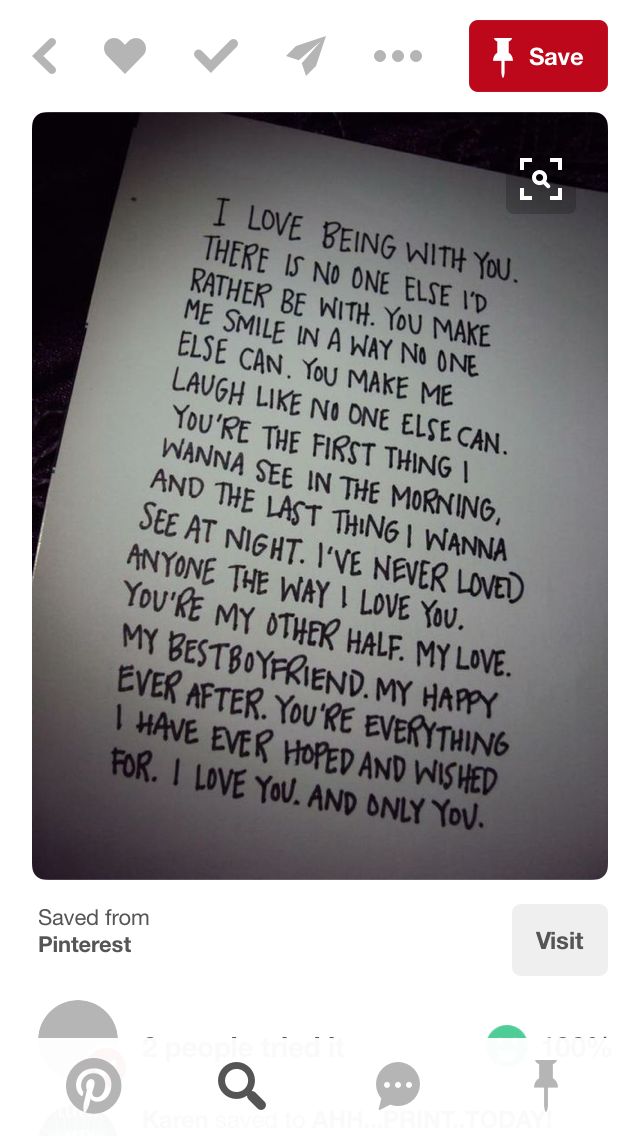 Save
I LOVE BEING WITH YOU.
THERE IS NO ONE ELSE I'D
RATHER BE WITH. YOU MAKE
ME SMILE IN A WAY NO ONE
ELSE CAN. YOU MAKE ME
LAUGH LIKE NO ONE ELSE CAN.
YOU'RE THE FIRST THING I
WANNA SEE IN THE MORNING,
AND THE LAST THING I WANNA
SEE AT NIGHT. I'VE NEVER LOVED
ANYONE THE WAY I LOVE YOU.
YOU'RE MY OTHER HALF. MY LOVE.
MY BESTBOYFRIEND. MY HAPPY
EVER AFTER. YOU'RE EVERYTHING
I HAVE EVER HOPED AND WISHED
FOR. I LOVE YOU. AND ONLY YOU.
Saved from
Pinterest
Visit
2 people tried it
100%
Karen saved to AHH...PRINT..TODAY!